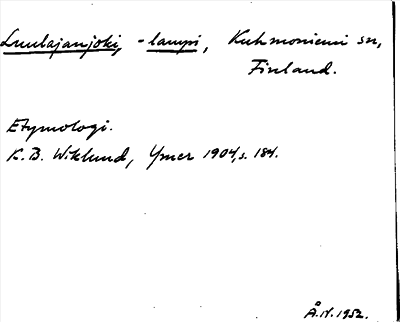 Luulajanjoki, -lampi, Kuhmoniemi sn,
Finland.
Etymologi.
K. B. Wiklund, Ymer 1904, s. 184.
Å.N. 1952.